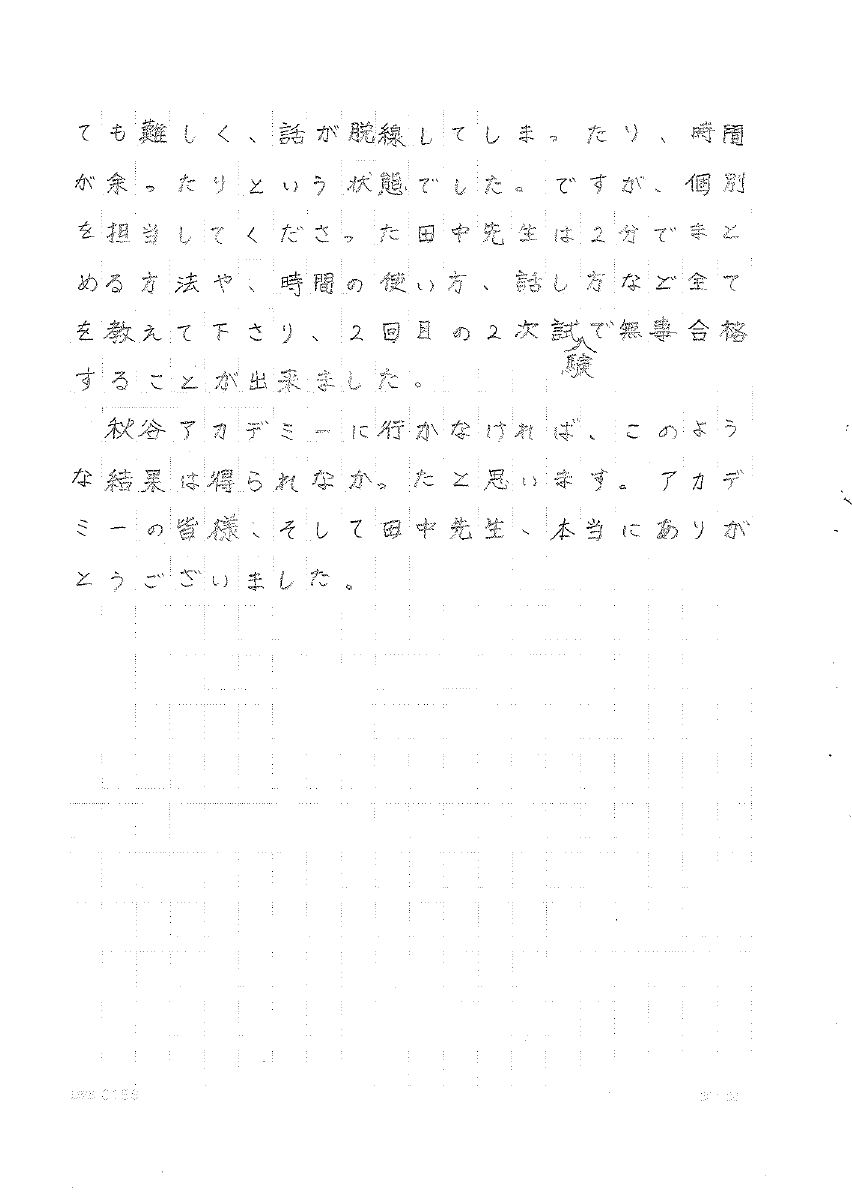 ても難しく、話が脱線してしまったり、時間
が余ったりという状態でした。ですが、個別
を担当してくださった田中先生は2分でまと
める方法や、時間の使い方、話し方など全て
を教えて下さり、2回目の2次試験で無事合格
することが出来ました。
秋谷アカデミーに行かなければ、このよう
な結果は得られなかったと思います。アカデ
ミーの皆様、そして田中先生、本当にありが
とうございました。